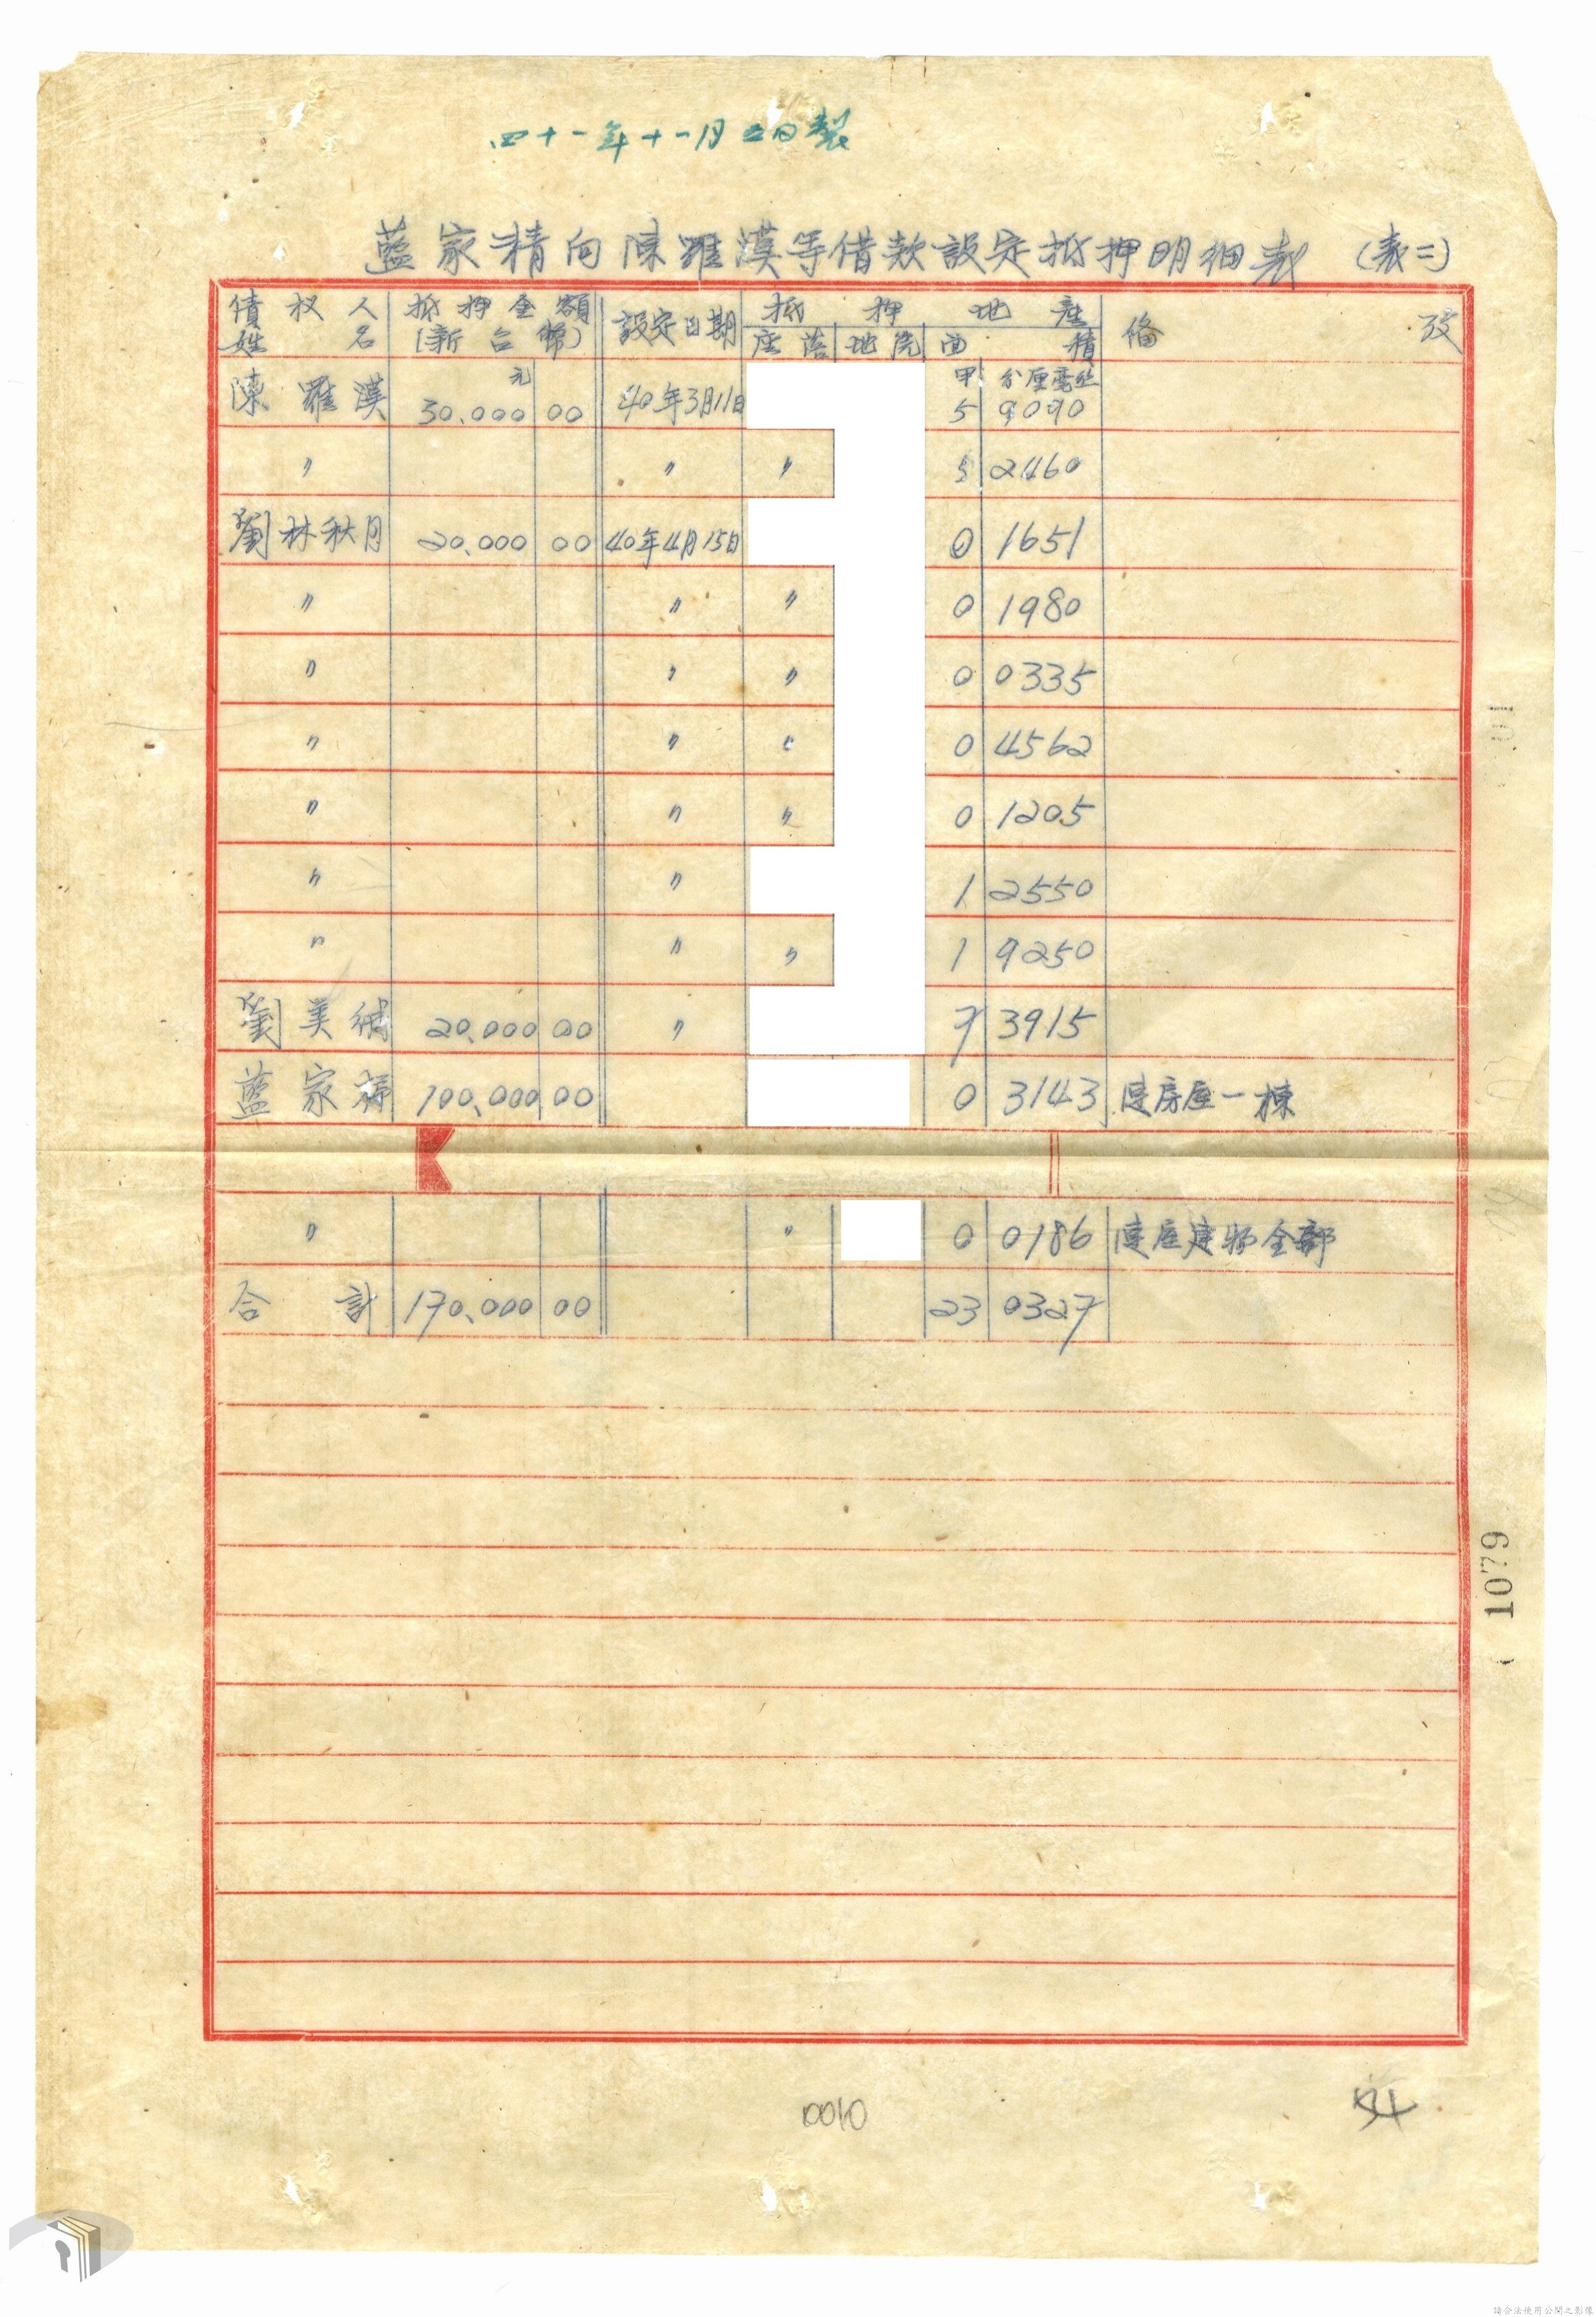 四十一年十一月五日製
藍家精向陳羅漢等借款設定抵押明細表 (表二)
債权人姓名 抵押金額(新台幣) 設定日期 抵押地產 備攷
座落 地号 面積
元 甲 分厘毫丝
陳羅漢 30,000 00 40年3月11日 5 9090
〃 〃 〃 5 2460
劉林秋月 20,000 00 40年4月15日 0 1651
〃 〃 〃 0 1980
〃 〃 〃 0 0335
〃 〃 〃 0 4562
〃 〃 〃 0 1205
〃 〃 1 2550
〃 〃 〃 1 9250
劉美 20,000 00 〃 7 3915
藍家 100,000 00 0 3143 連房屋一棟
〃 〃 0 0186 連座建物全部
合計 170,000 00 23 0327
1079
0010
34
請合法使用公開之影像